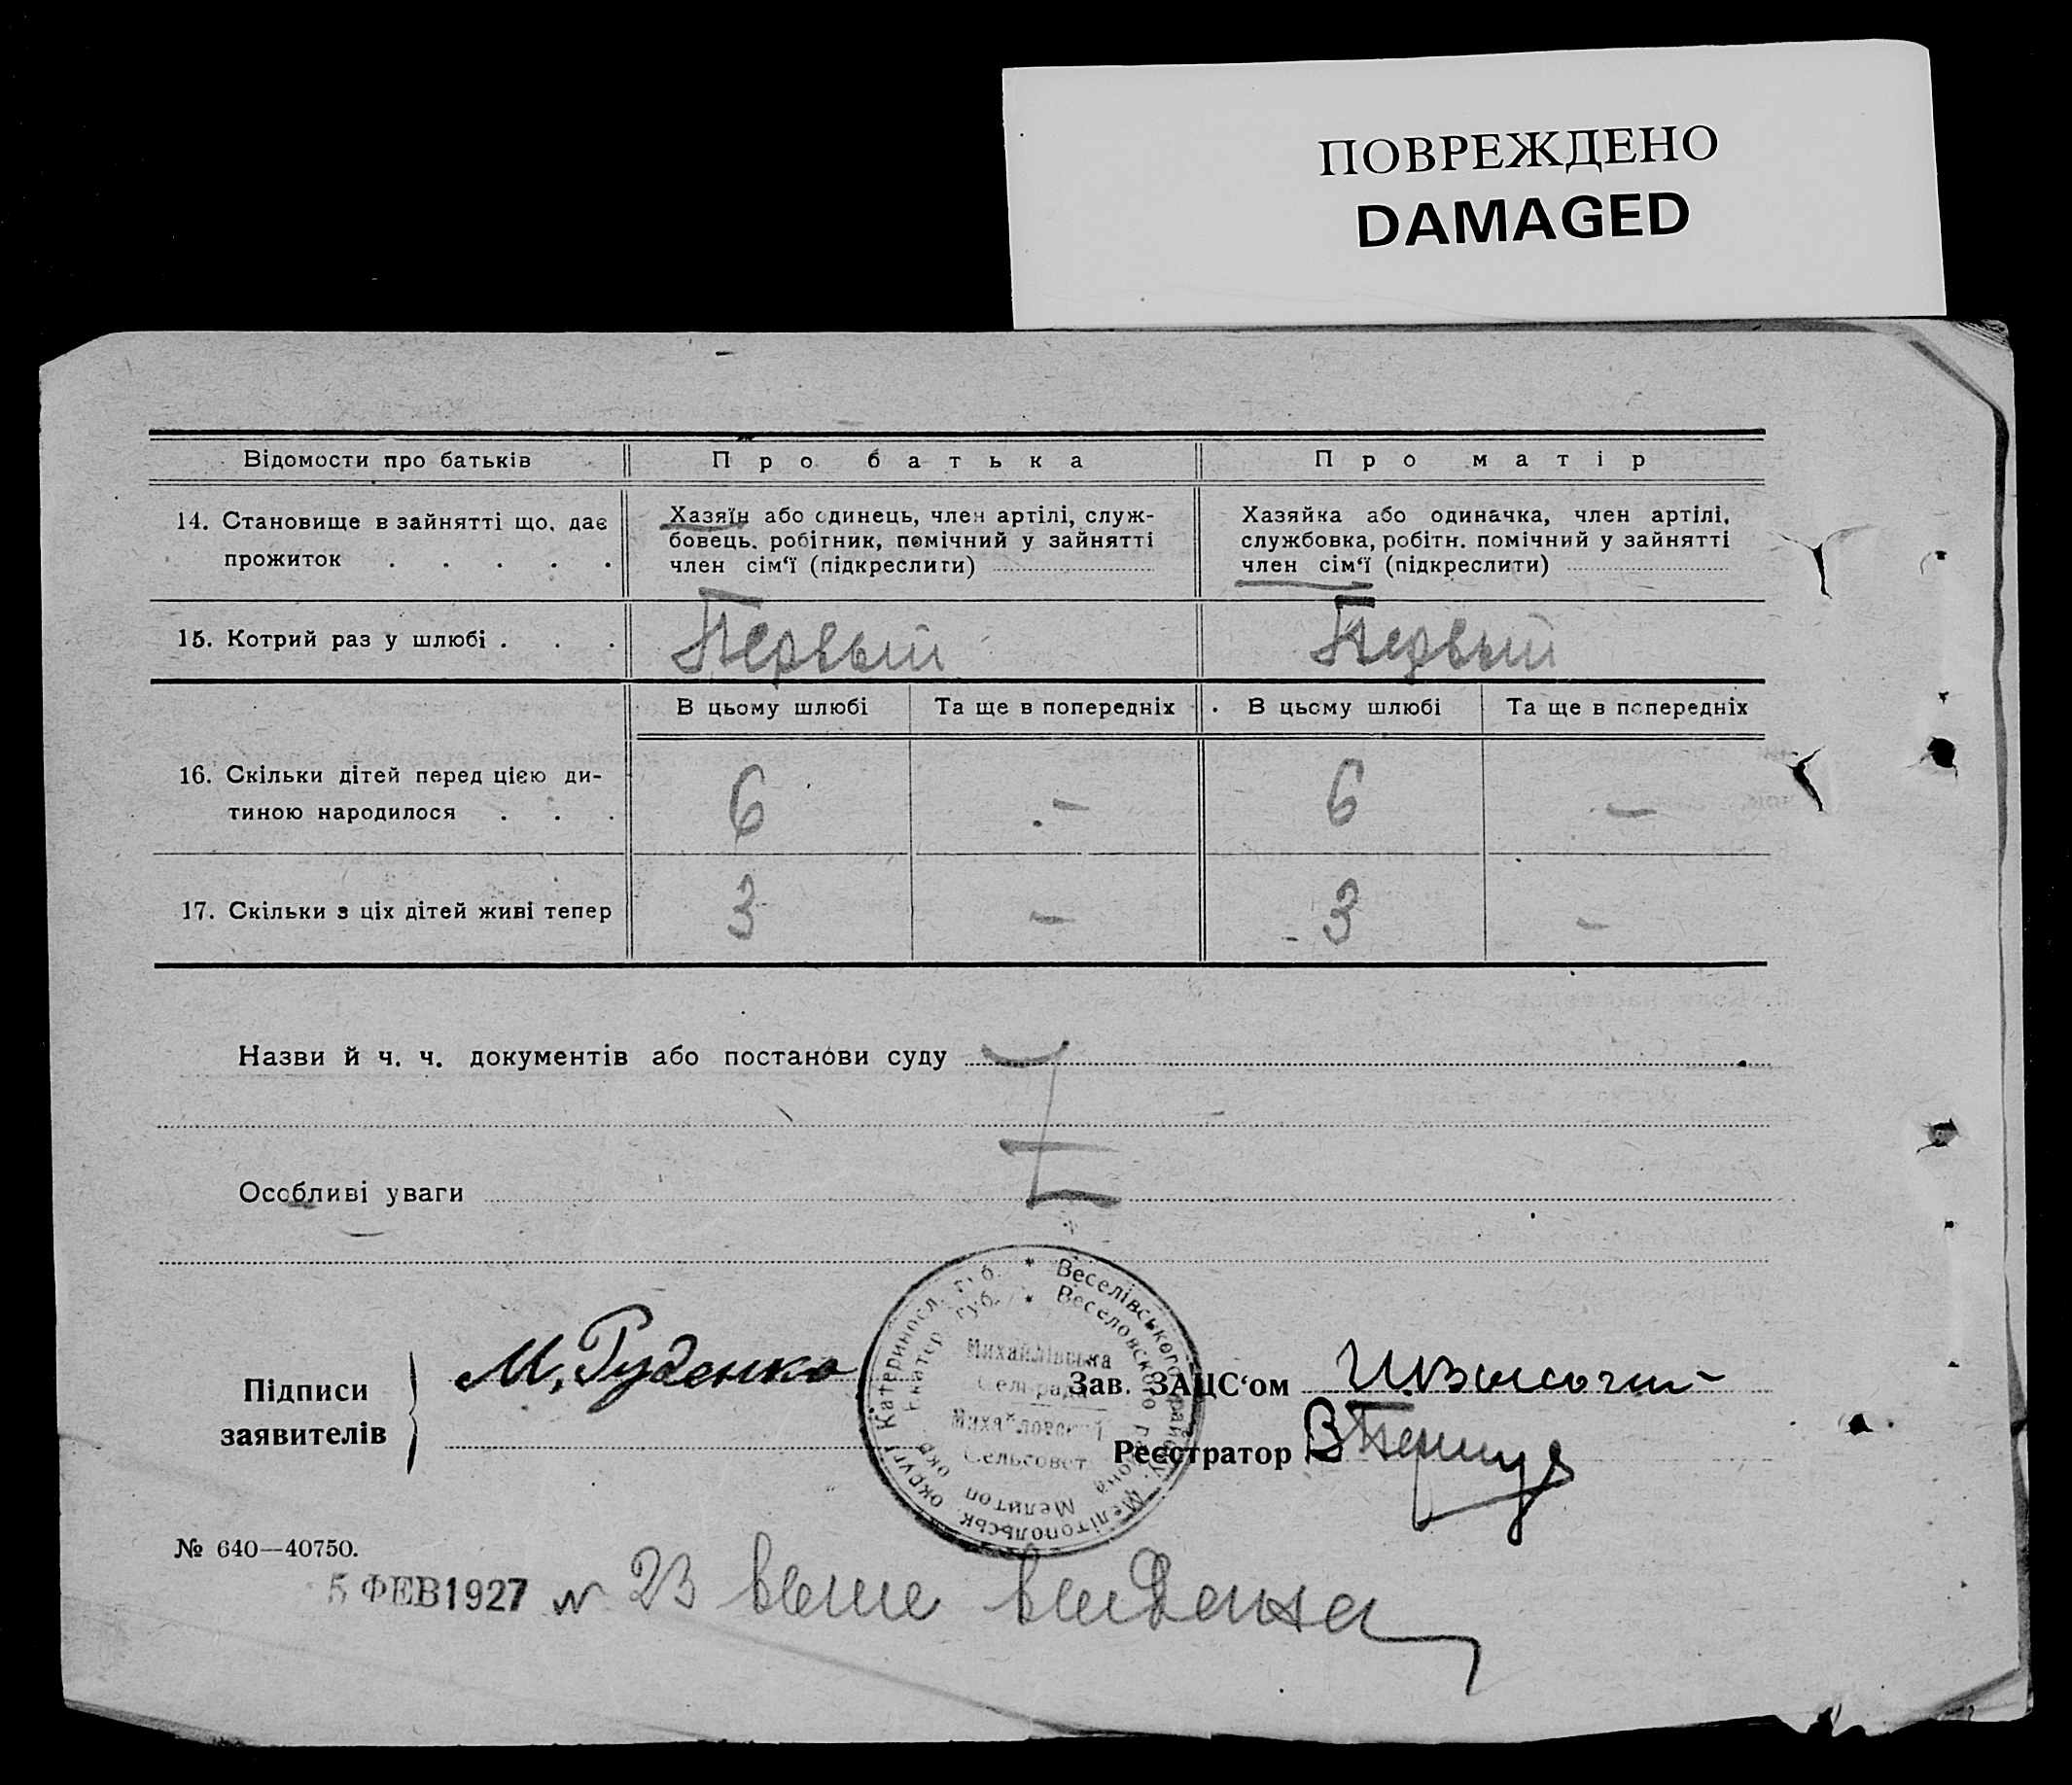 ПОВРЕЖДЕНО
DAMAGED
Відомости про батьків
Про батька
Про матір
14. Становище в зайнятті що, дає
прожиток . . . . .
Хазяїн або одинець, член артілі, служ-
бовець, робітник, помічний у зайнятті
член сім‘ї (підкреслити)
Хазяйка або одиначка, член артілі,
службовка, робітн. помічний у зайнятті
член сім‘ї (підкреслити)
15. Котрий раз у шлюбі . . .
Первый
Первый
В цьому шлюбі
Та ще в попередніх
В цьому шлюбі
Та ще в попередніх
16. Скільки дітей перед цією ди-
тиною народилося . . .
6
-
6
-
17. Скільки з ціх дітей живі тепер
3
-
3
-
Назви й ч. ч. документів або постанови суду
Особливі уваги
Підписи
заявителів
М. Руденко
Катериносл. губ. * Веселівського району, Мелітопольськ. округ
Екатер. губ. * Веселовского района Мелитоп. окр.
Михайлівська
Сельрада
Михайловский
Сельсовет
Зав. ЗАЦС‘ом
Реєстратор
№ 640—40750.
5 ФЕВ 1927 № 23 выпис выдана